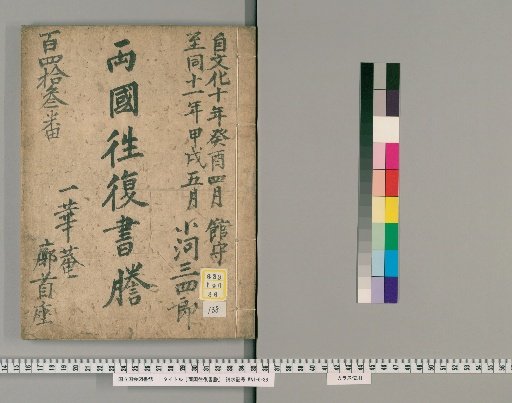 自文化十年癸酉四月 館守
至同十一年甲戌五月 小河三四郎
両國往復書謄
一華菴
廓首座
百四拾叁番
138